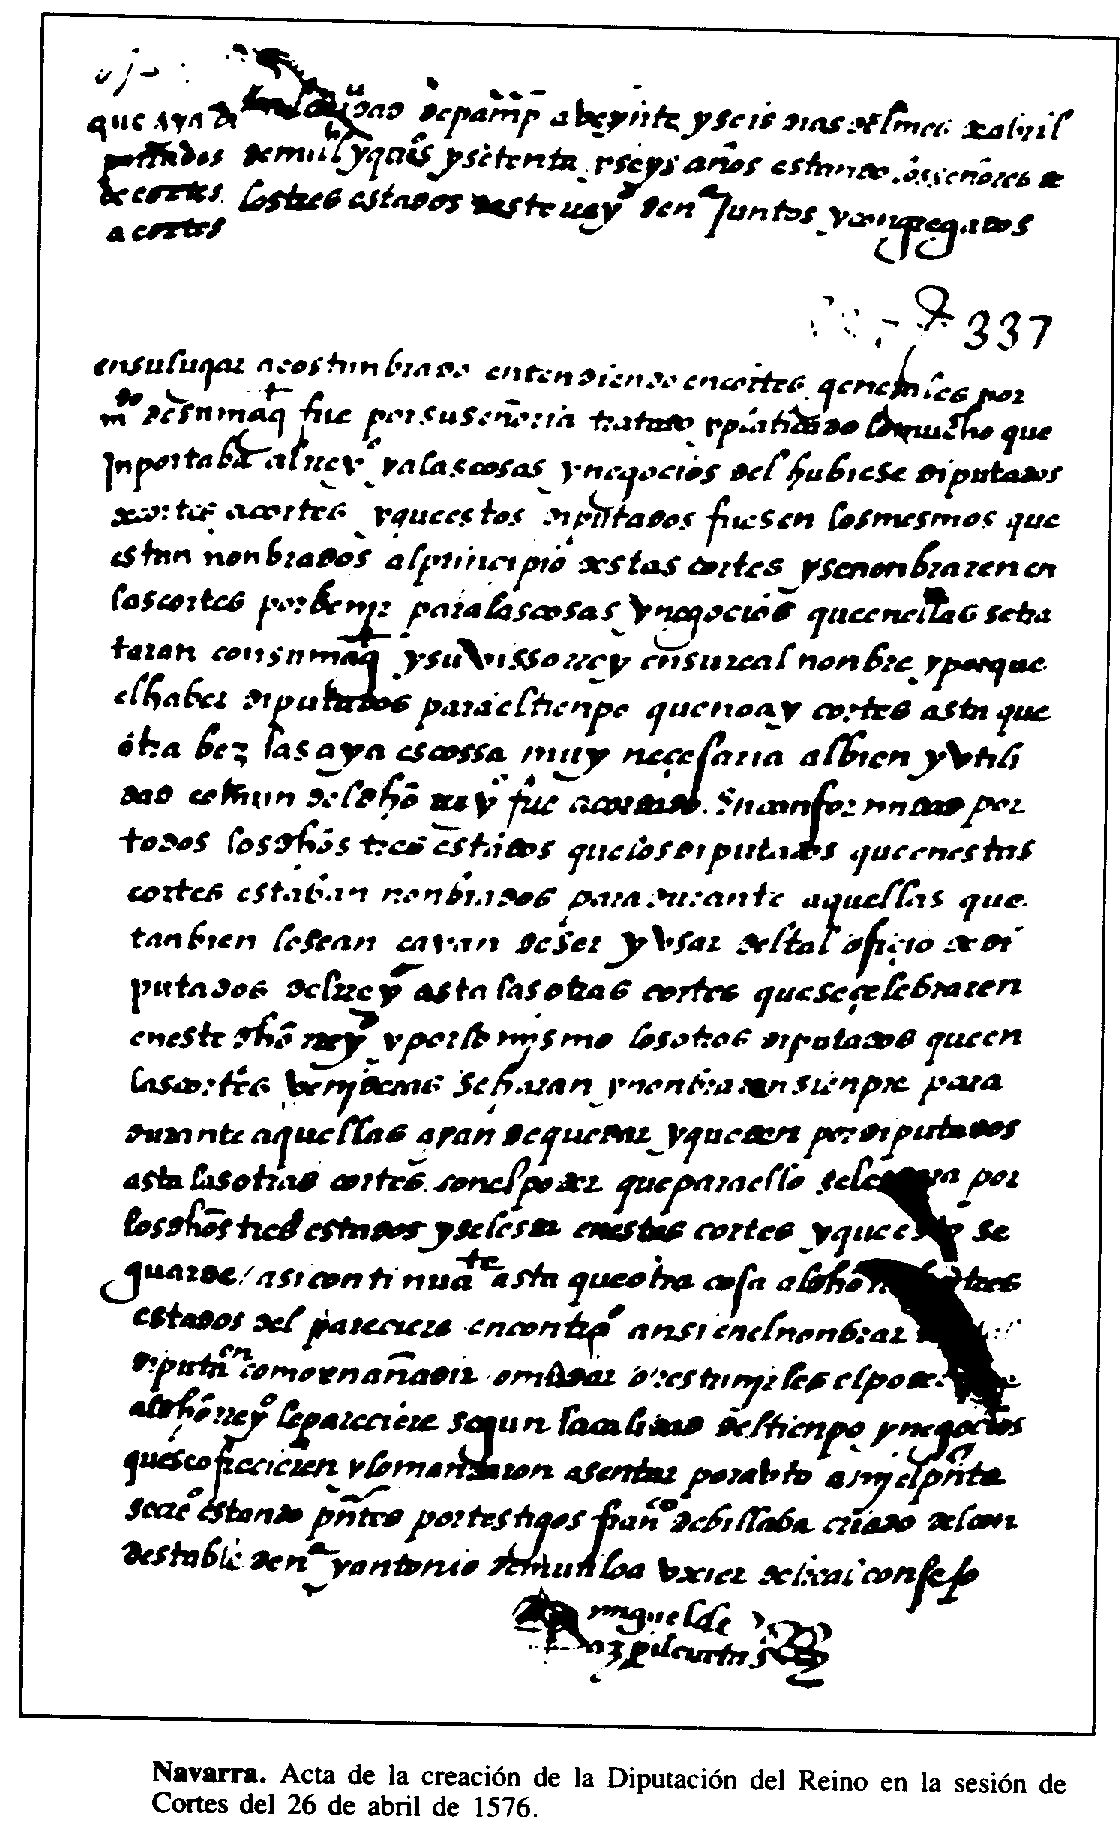 que aya di
putados
de cortes
a cortes
En la ciudad de pamp a beynte y seis dias del mes de abril
de mil y qui͠s y setenta y seys años estando los señores de
los tres estados deste rey° de na Juntos y congregados
337
en su lugar acostunbrado entendiendo en cortes generales por
mdo de su magt fue por su señoria tratado y platicado lo mucho que
Inportaba al rey° y a las cosas y negocios del hubiese diputados
de cortes a cortes y que estos diputados fuesen los mesmos que
estan nonbrados al principio destas cortes y se nonbraren en
las cortes por benir para las cosas y negocios que en ellas se tra
taran con su magt y su vissorrey en su real nonbre y porque
el haber diputados para el tienpo que no ay cortes asta que
otra bez las aya es cossa muy neçesaria al bien y vtili
dad comun del dho rey° fue acordado En conformidad por
todos los dhos tres estados que los diputados que en estas
cortes estaban nonbrados para durante aquellas que
tanbien lo sean e ayan de ser y vsar del tal ofiçio de di
putados del rey° asta las otras cortes que se çelebraren
en este dho rey° y por lo mismo los otros diputados que en
las cortes benideras se haran y nonbraran sienpre para
durante aquellas ayan de quedar y queden por diputados
asta las otras cortes con el poder que para ello se les dara por
los dhos tres estados y se les da en estas cortes y que esto se
guarde / asi continuate asta que otra cosa a los dhos tres
estados del pareciere en contro ansi en el nonbrar
diputaen como en añadir o mudar o restrinjirles el poder
al dho rey° le pareciere segun la calidad del tienpo y negocios
que se ofrecieren y lo mandaron asentar por auto a mj el pnte
secre° estando pntes por testigos franco de billaba criado del con
destable de na y antonio de muniloa vxier del real consejo
miguel de
azpilcueta s°
Navarra. Acta de la creación de la Diputación del Reino en la sesión de
Cortes del 26 de abril de 1576.